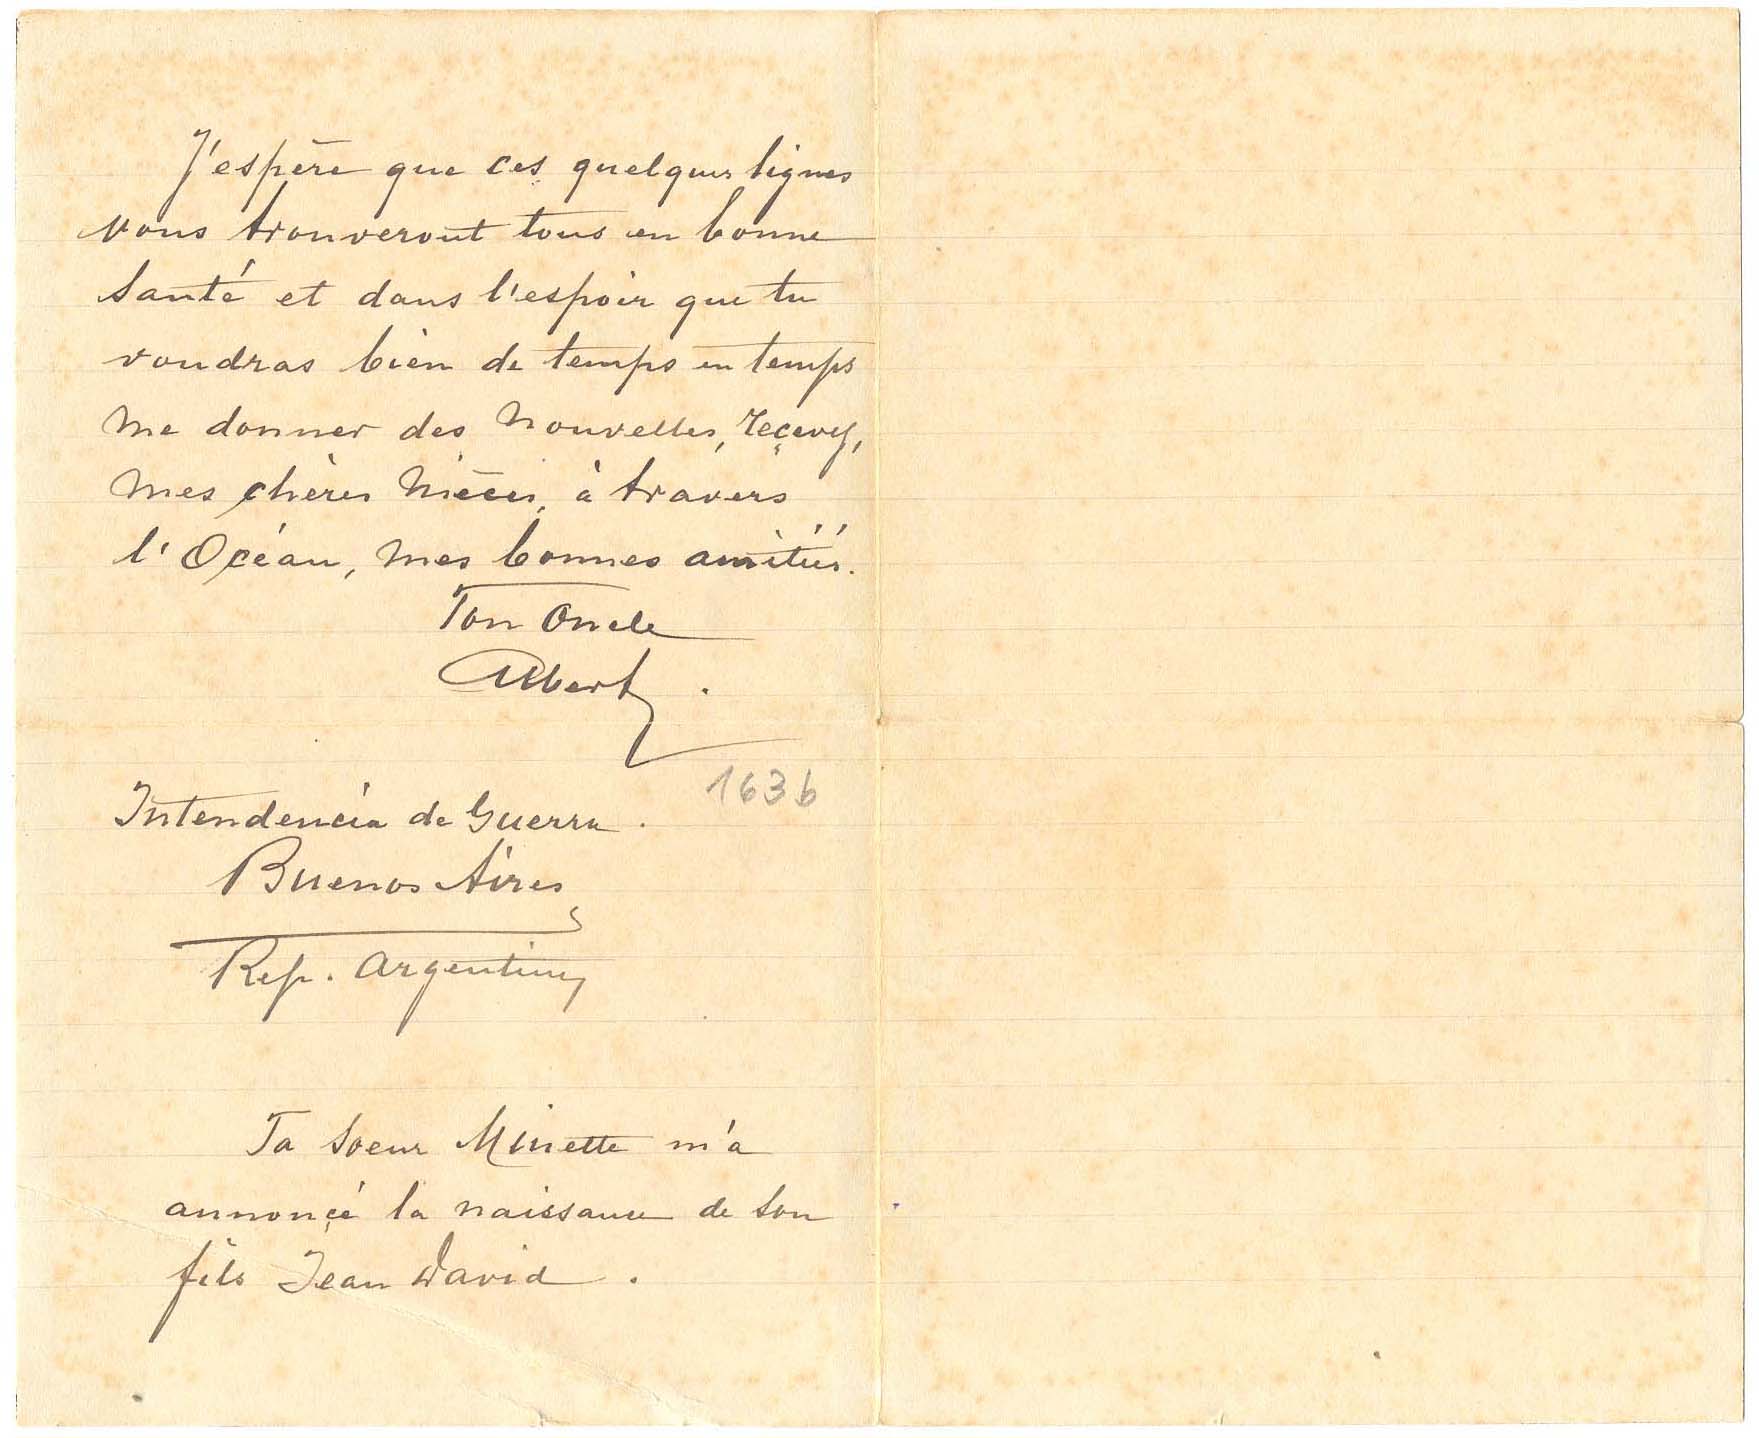 J'espère que ces quelques lignes
vous trouveront tous en bonne
santé et dans l'espoir que tu
voudras bien de temps en temps
me donner des nouvelles, reçevez,
mes chères nièces, à travers
l'Océan, mes bonnes amitiés.
Ton Oncle
Albert.
163b
Intendencia de Guerra.
Buenos Aires
Rep. Argentina
Ta soeur Minette m'a
annoncé la naissance de son
fils Jean David.